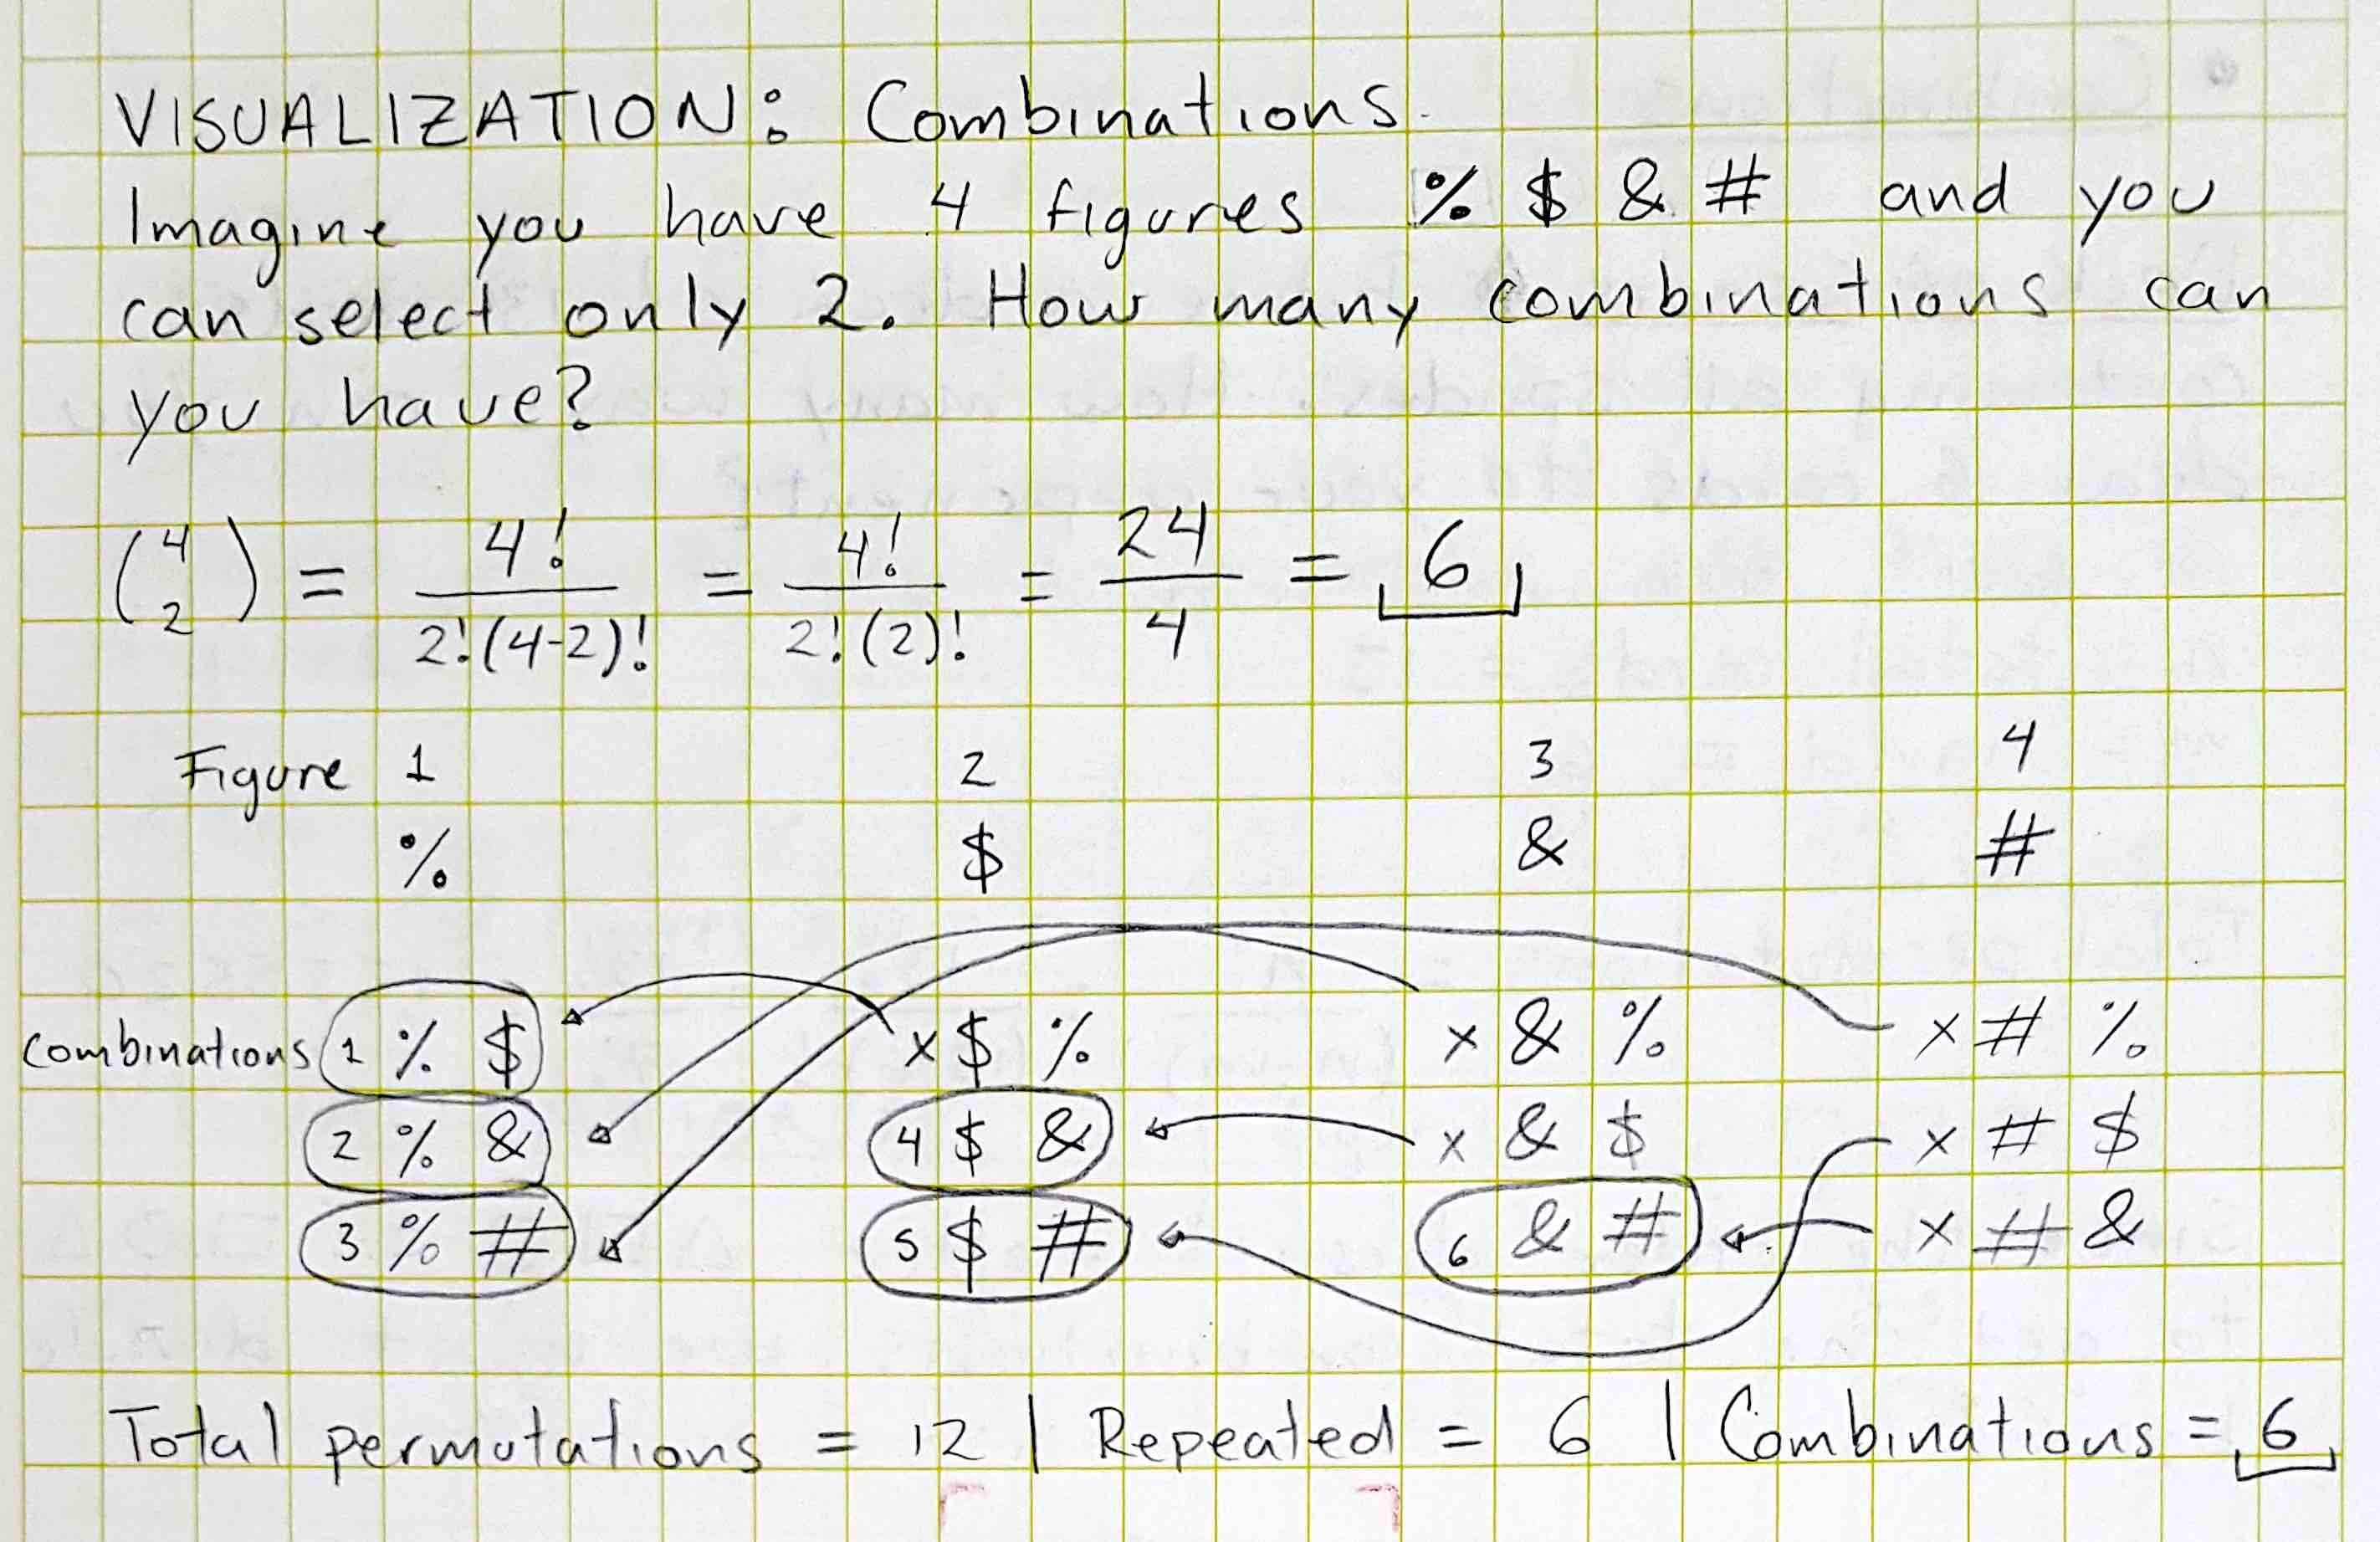 VISUALIZATION: Combinations.
Imagine you have 4 figures % $ & # and you
can select only 2. How many combinations can
you have?
(4 2) = 4! / 2!(4-2)! = 4! / 2!(2)! = 24 / 4 = 6
Figure 1 2 3 4
% $ & #
Combinations 1 % $ x $ % x & % x # %
2 % & 4 $ & x & $ x # $
3 % # 5 $ # 6 & # x # &
Total permutations = 12 | Repeated = 6 | Combinations = 6